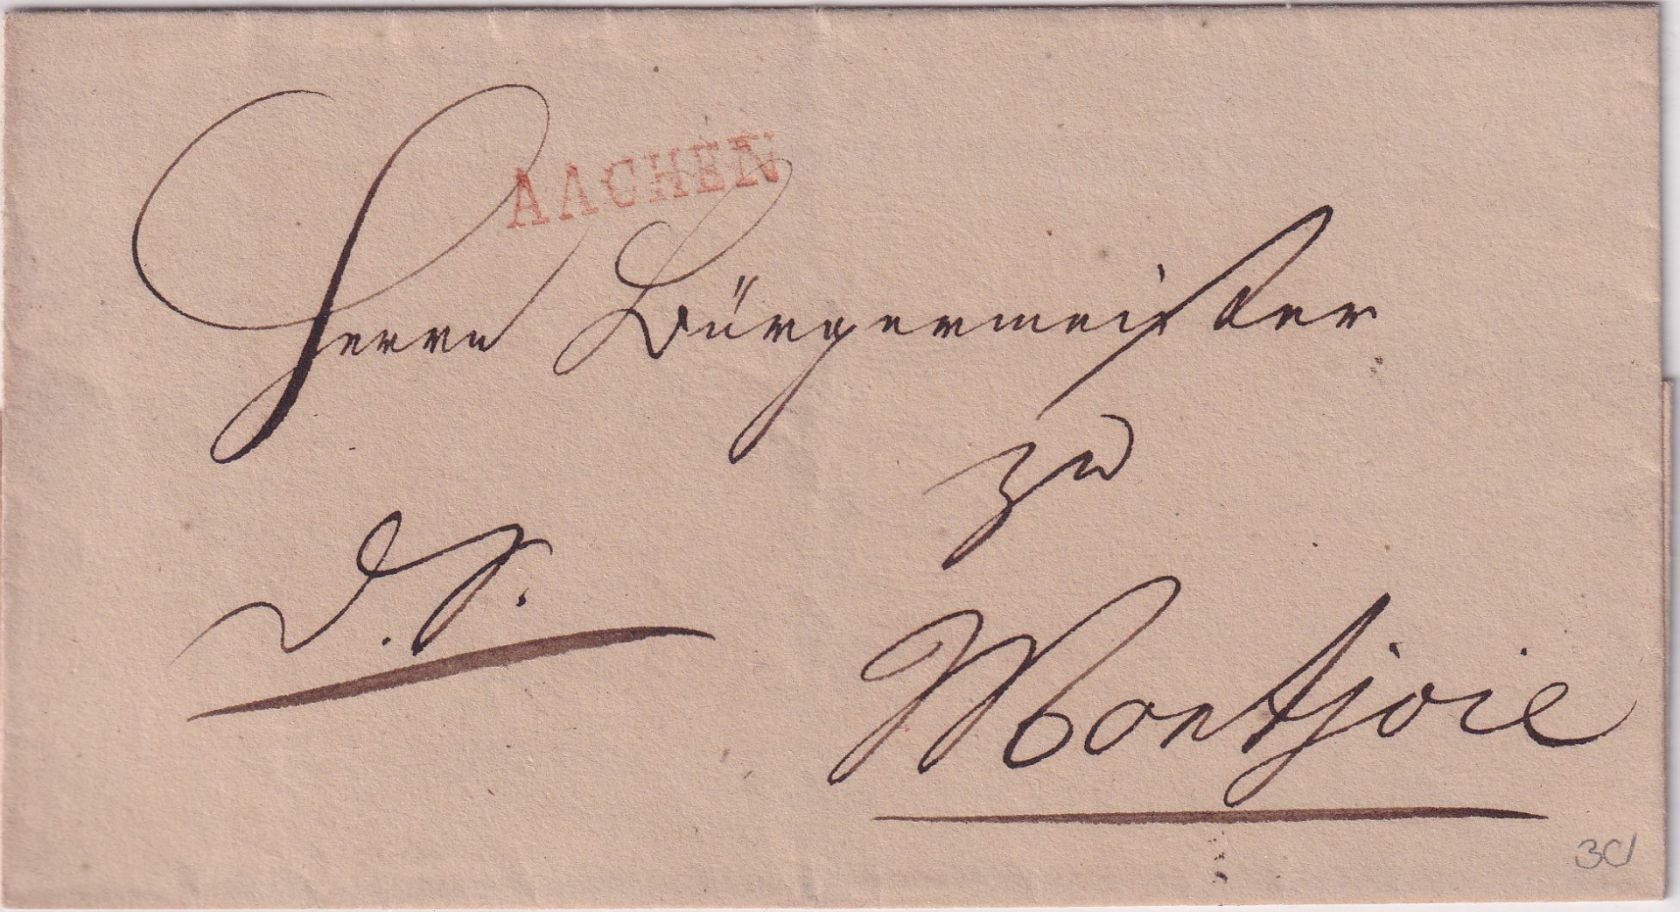 AACHEN
Herrn Bürgermeister
zu
D. S.
Montjoie